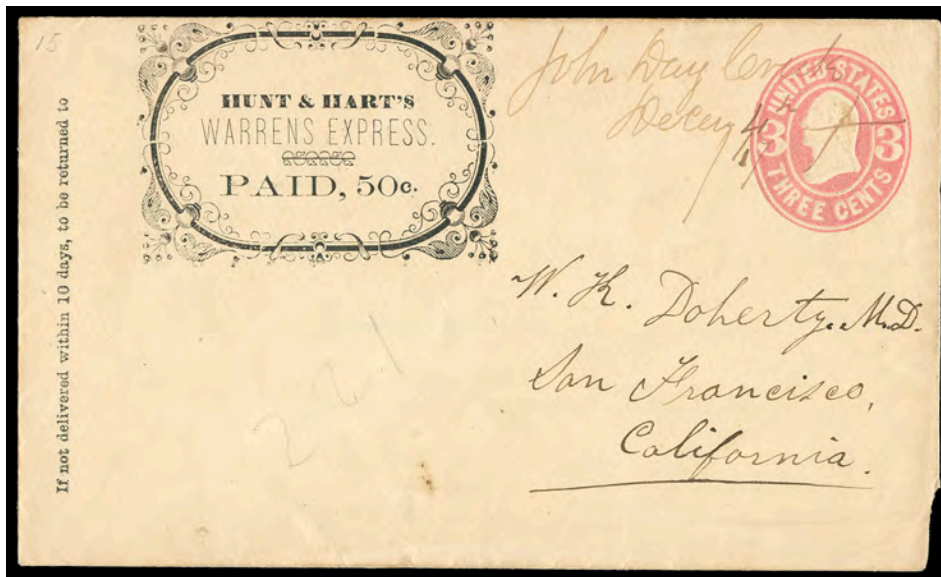 15
If not delivered within 10 days, to be returned to
HUNT & HART'S
WARRENS EXPRESS.
PAID, 50c.
John Day
UNITED STATES
3 3
THREE CENTS
W. K. Doherty. M.D.
San Francisco,
California.
261